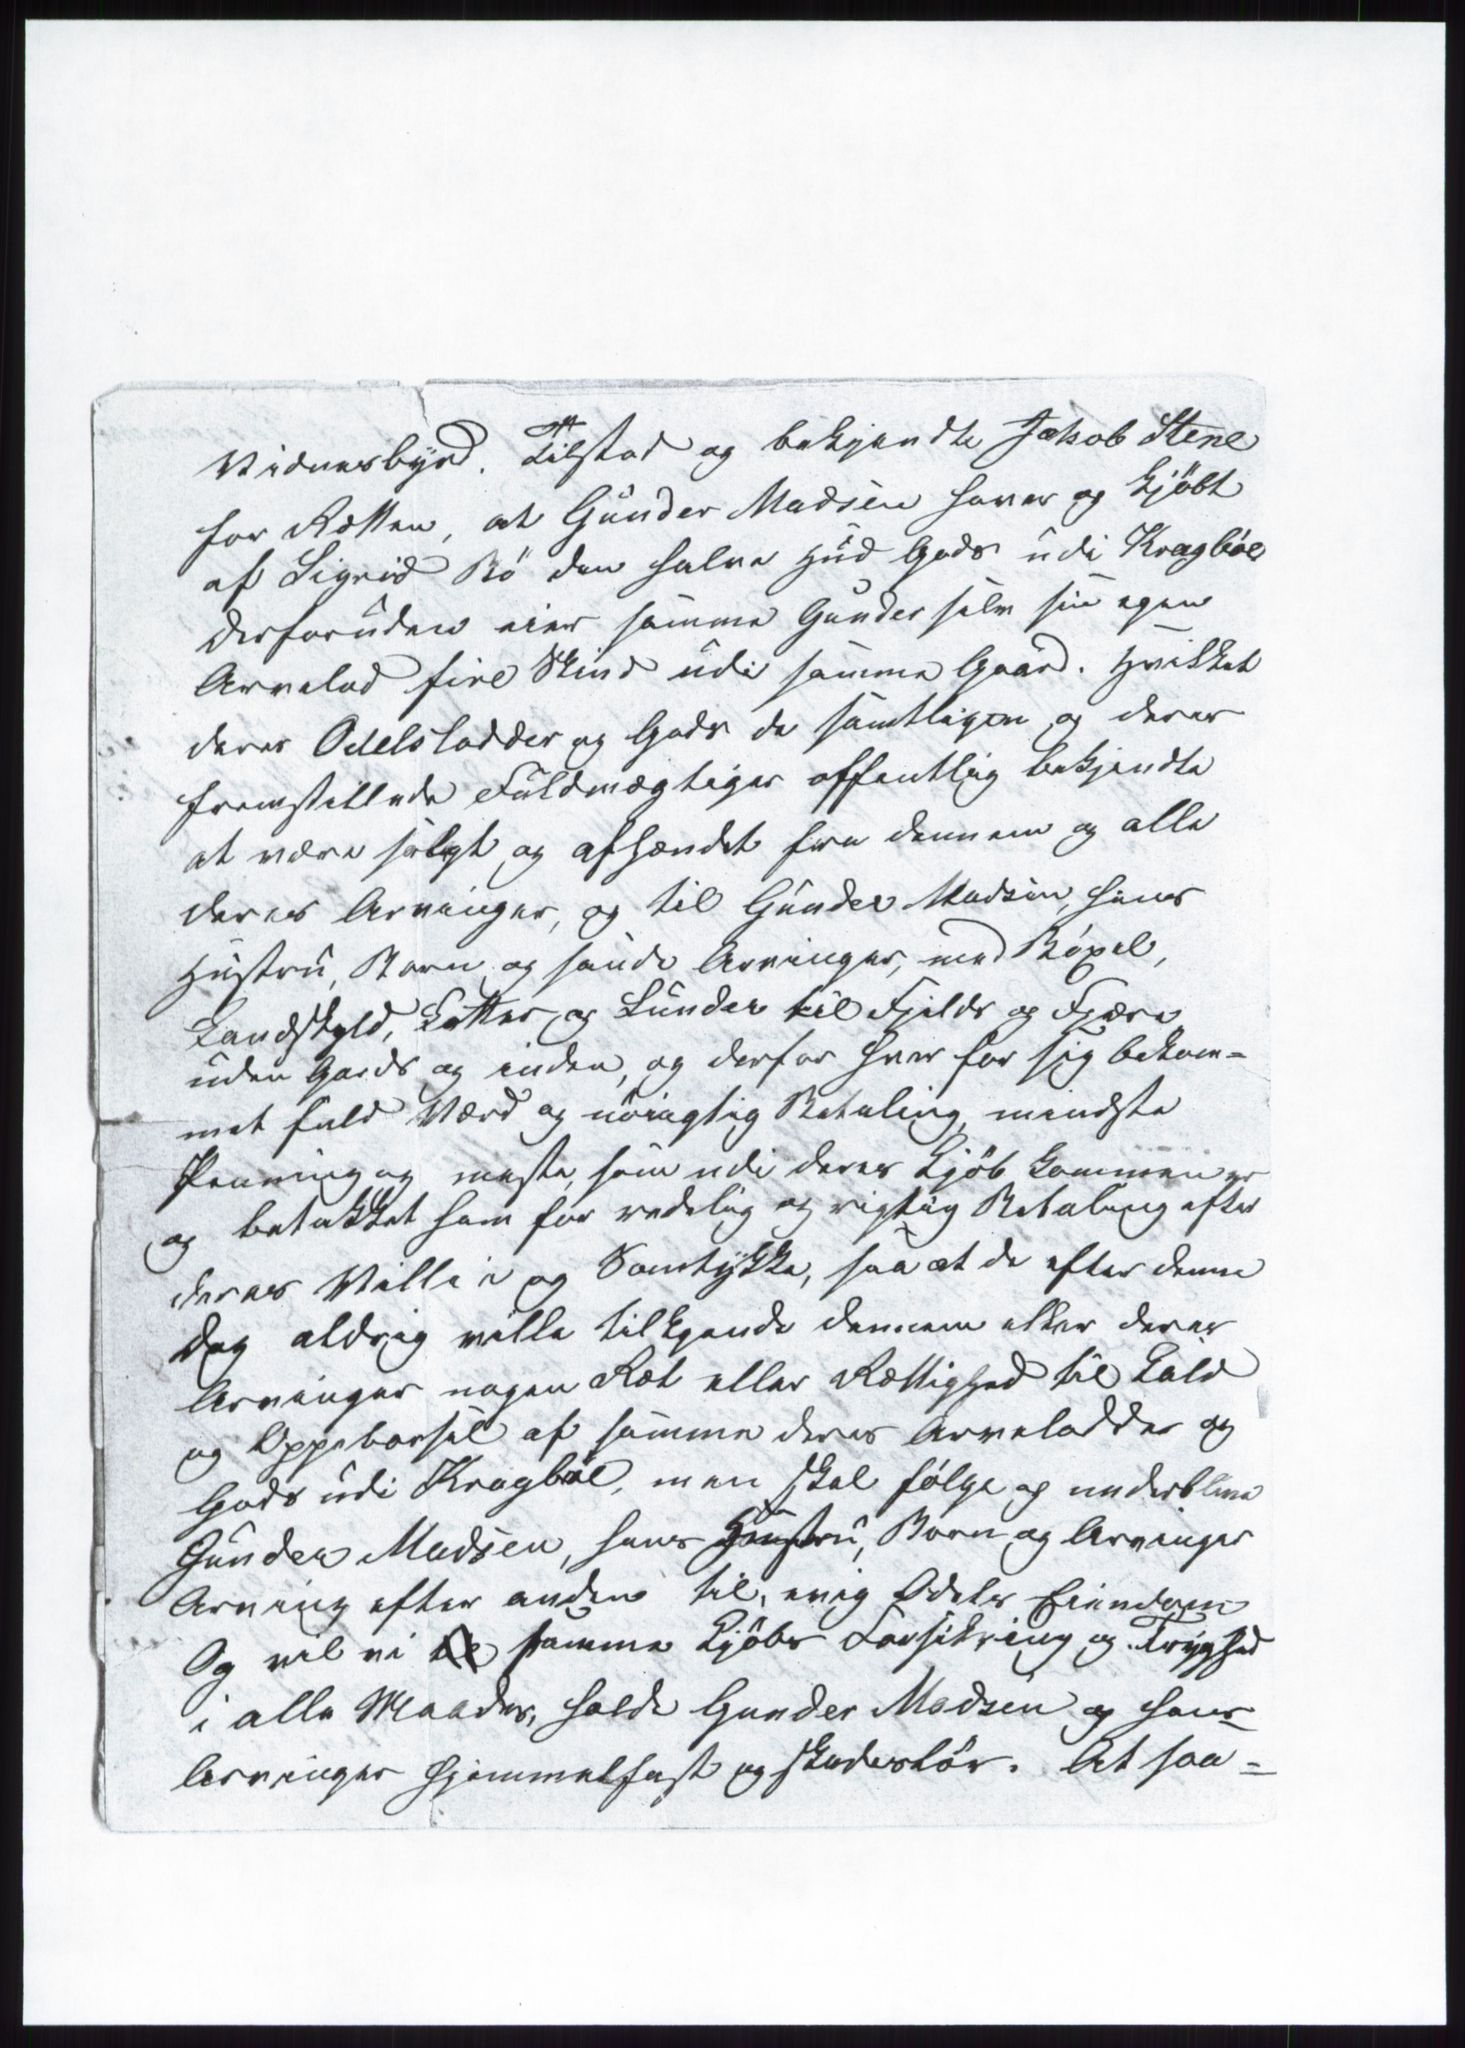 Vidnesbyrd. Tilstod og bekjendte Jakob Stene
for Retten, at Gunder Madsen haver og kjöbt
af Sigrid Bö den halve Hud Gods udi Kragböl
desforuden eier samme Gunder selv sin egen
Arvelod fire Skind udi samme Gaard. Hvilket
deres Odelslodder og Gods de samtligen og deres
fremstillede Fuldmægtiger offentlig bekjendte
at være solgt og afhændet fra dennem og alle
deres Arvinger, og til Gunder Madsen, hans
Hustru, Børn og sande Arvinger, med Böxel,
Landskyld, Lotter og Lunder til Fjelds og Fjære
uden Gards og inden, og derfor hver for sig bekom-
met fuld Værd og nöiagtig Betaling, mindste
Penning og meste, som udi deres Kjöb kommen er
og betakket ham for redelig og rigtig Betaling efter
deres Villie og Samtykke, saa at de efter denne
Dag aldrig ville tilkjende dennem eller deres
Arvinger nogen Ret eller Rettighed til Lald
og Oppeborsel af samme deres Arvelodder og
Gods udi Kragböl, men skal fölge og underblive
Gunder Madsen, hans Hustru, Born og Arvinger
Arving efter anden til evig Odels Eiendom
Og vil vi samme Kjöbs Forsikring og Tryghed
i alle Maader, holde Gunder Madsen og hans
Arvinger hjemmelfast og skadeslös. At saa-